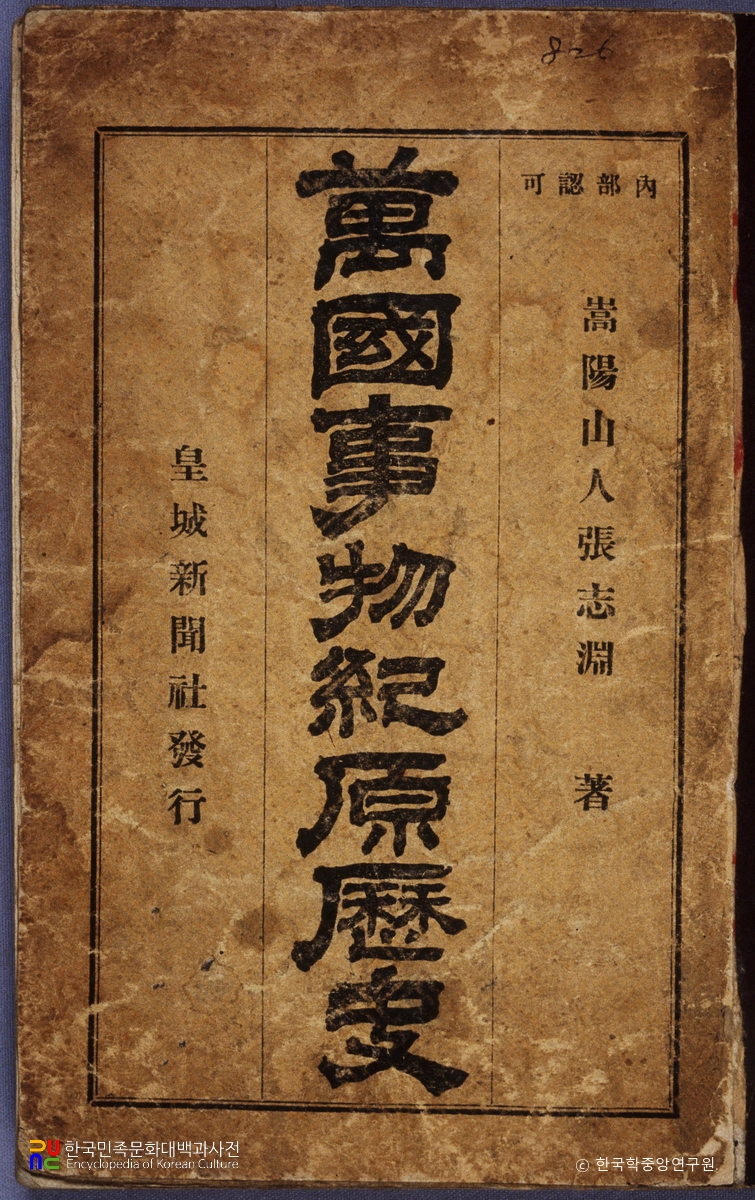 826
內部認可
嵩陽山人張志淵 著
萬國事物紀原歷史
皇城新聞社發行
한국민족문화대백과사전
Encyclopedia of Korean Culture
© 한국학중앙연구원.